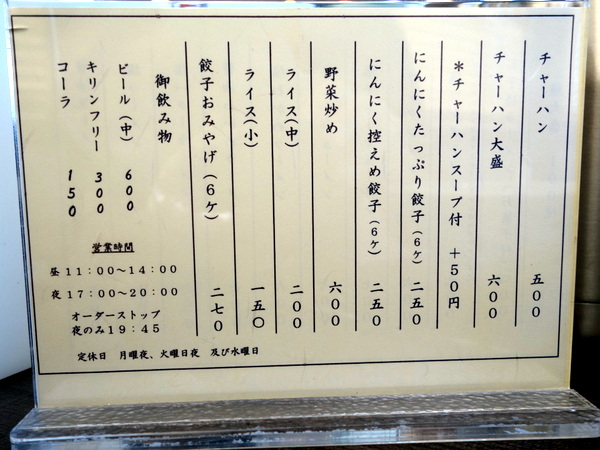 チャーハン 五〇〇
チャーハン大盛 六〇〇
＊チャーハンスープ付 +50円
にんにくたっぷり餃子(6ケ) 二五〇
にんにく控えめ餃子(6ケ) 二五〇
野菜炒め 六〇〇
ライス(中) 二〇〇
ライス(小) 一五〇
餃子おみやげ(6ケ) 二七〇
御飲み物
ビール(中) 600
キリンフリー 300
コーラ 150
営業時間
昼 11:00〜14:00
夜 17:00〜20:00
オーダーストップ
夜のみ19:45
定休日 月曜夜、火曜日夜 及び水曜日